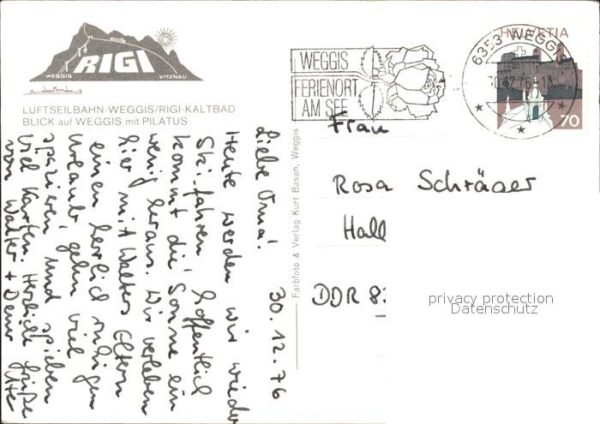 WEGGIS
RIGI
VITZNAU
LUFTSEILBAHN-WEGGIS/RIGI-KALTBAD
BLICK auf WEGGIS mit PILATUS
30.12.76
Liebe Oma!
Heute werden wir wieder
Ski fahren, hoffentlich
kommt die Sonne ein
wenig heraus. Wir verleben
hier mit Walters Eltern
einen herrlich ruhigen
Urlaub, gehen viel
spazieren und spielen
viel Karten. Herzliche Grüße
von Walter + Deiner Ute
Farbfoto & Verlag Kurt Basan, Weggis
WEGGIS
FERIENORT
AM SEE
6353 WEGGIS
HELVETIA
70
Frau
Rosa Schräger
Hall
DDR 8
privacy protection
Datenschutz